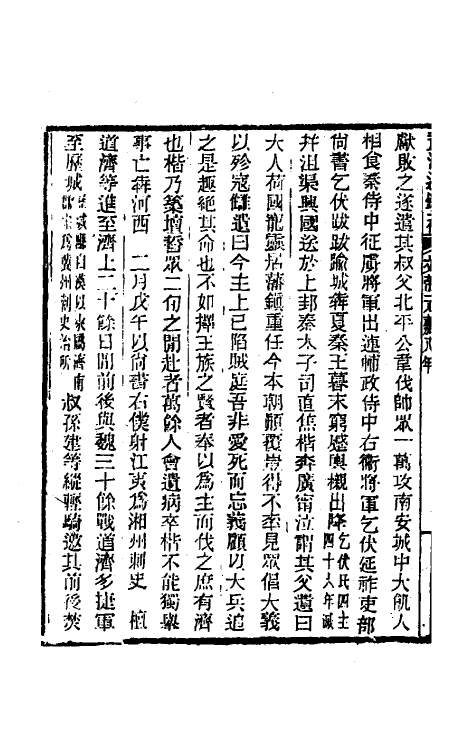 獻敗之遂遣其叔父北平公韋伐帥眾一萬攻南安城中大飢人
相食秦侍中征虜將軍出連輔政侍中右衛將軍乞伏延祚吏部
尚書乞伏跋跋踰城奔夏秦王暮末窮蹙輿櫬出降乞伏氏四主四十六年滅
并沮渠興國送於上邽秦太子司直焦楷奔廣甯泣謂其父遺曰
大人荷國寵靈居藩鎮重任今本朝顛覆豈得不率見眾倡大義
以殄寇讎遺曰今主上已陷賊庭吾非愛死而忘義顧以大兵追
之是趣絕其命也不如擇王族之賢者奉以為主而伐之庶有濟
也楷乃築壇誓眾二旬之閒赴者萬餘人會遺病卒楷不能獨舉
事亡奔河西　二月戊午以尚書右僕射江夷為湘州刺史　檀
道濟等進至濟上二十餘日閒前後與魏三十餘戰道濟多捷軍
至歷城歷城縣自漢以來屬濟南郡宋為冀州刺史治所叔孫建等縱輕騎邀其前後焚